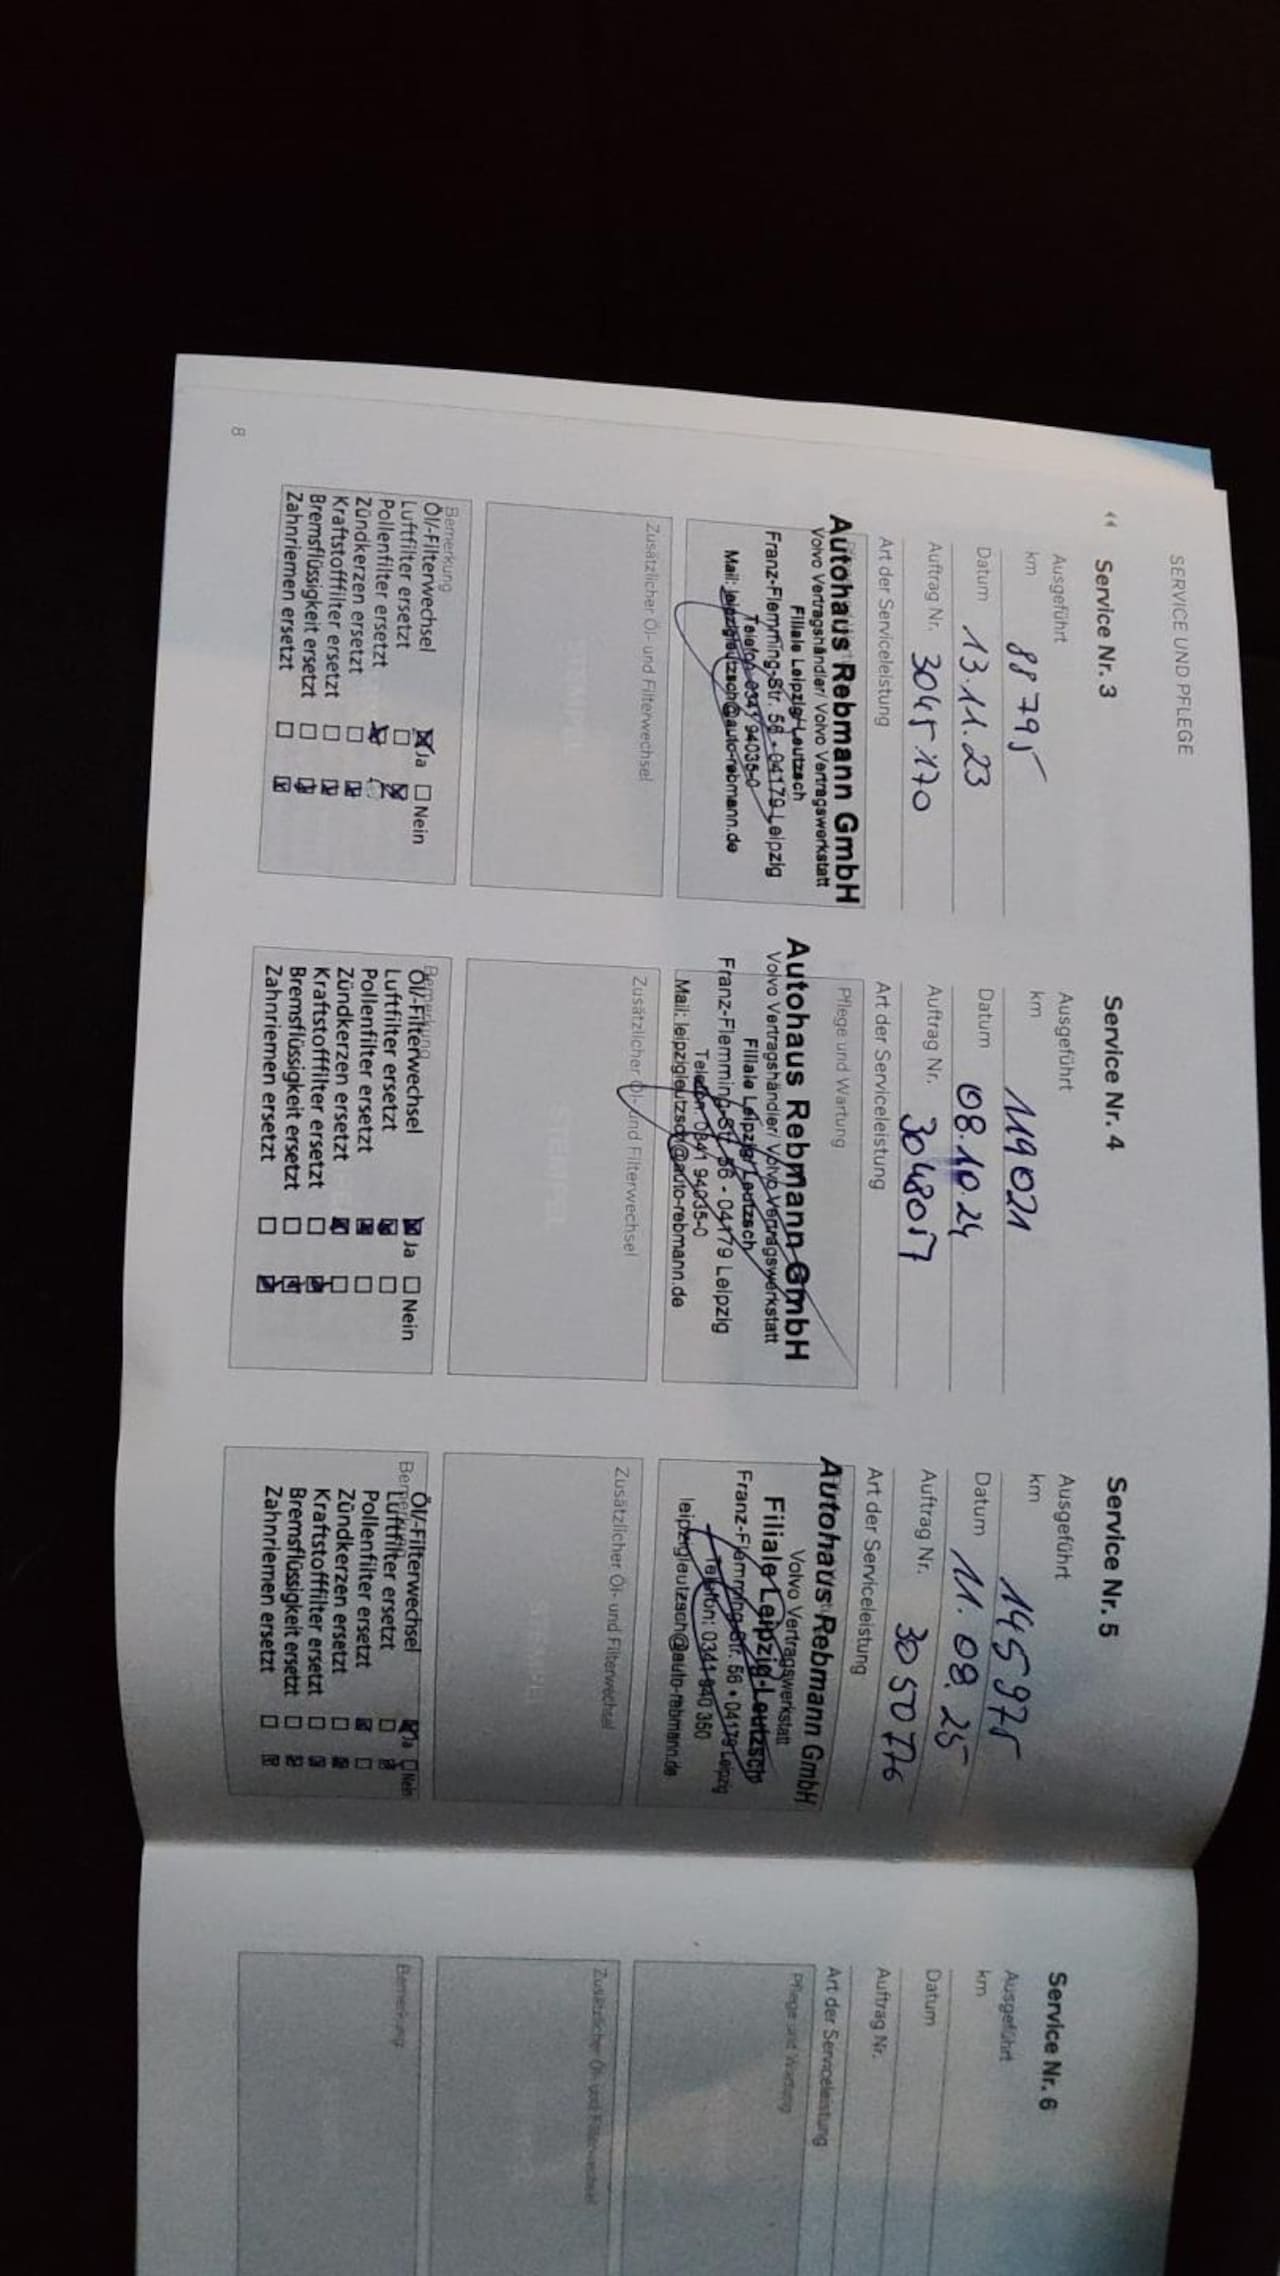 SERVICE UND PFLEGE
◂◂ Service Nr. 3
Ausgeführt
km 88795
Datum 13.11.23
Auftrag Nr. 3045170
Art der Serviceleistung
Autohaus Rebmann GmbH
Volvo Vertragshändler/ Volvo Vertragswerkstatt
Filiale Leipzig-Leutzsch
Franz-Flemming-Str. 56 • 04179 Leipzig
Telefon 0341 94035-0
Mail: leipzigleutzsch@auto-rebmann.de
Zusätzlicher Öl- und Filterwechsel
STEMPEL
Bemerkung
Öl/-Filterwechsel ☒ Ja ☐ Nein
Luftfilter ersetzt ☐ ☒
Pollenfilter ersetzt ☒
Zündkerzen ersetzt ☐ ☒
Kraftstofffilter ersetzt ☐ ☒
Bremsflüssigkeit ersetzt ☐ ☒
Zahnriemen ersetzt ☐ ☒
8
Service Nr. 4
Ausgeführt
km 119021
Datum 08.10.24
Auftrag Nr. 3048057
Art der Serviceleistung
Pflege und Wartung
Autohaus Rebmann GmbH
Volvo Vertragshändler/ Volvo Vertragswerkstatt
Filiale Leipzig-Leutzsch
Franz-Flemming-Str. 56 - 04179 Leipzig
Telefon: 0341 94035-0
Mail: leipzigleutzsch@auto-rebmann.de
Zusätzlicher Öl- und Filterwechsel
STEMPEL
Bemerkung
Öl/-Filterwechsel ☒ Ja ☐ Nein
Luftfilter ersetzt ☒ ☐
Pollenfilter ersetzt ☒ ☐
Zündkerzen ersetzt ☒ ☐
Kraftstofffilter ersetzt ☐ ☒
Bremsflüssigkeit ersetzt ☐ ☒
Zahnriemen ersetzt ☐ ☒
Service Nr. 5
Ausgeführt
km 145975
Datum 11.08.25
Auftrag Nr. 3050776
Art der Serviceleistung
Autohaus Rebmann GmbH
Volvo Vertragswerkstatt
Filiale Leipzig-Leutzsch
Franz-Flemming-Str. 56 • 04179 Leipzig
Telefon: 0341 940 350
leipzigleutzsch@auto-rebmann.de
Zusätzlicher Öl- und Filterwechsel
STEMPEL
Bemerkung
Öl/-Filterwechsel ☒ Ja ☐ Nein
Luftfilter ersetzt ☐ ☒
Pollenfilter ersetzt ☒ ☐
Zündkerzen ersetzt ☐ ☒
Kraftstofffilter ersetzt ☐ ☒
Bremsflüssigkeit ersetzt ☐ ☒
Zahnriemen ersetzt ☐ ☒
Service Nr. 6
Ausgeführt
km
Datum
Auftrag Nr.
Art der Serviceleistung
Pflege und Wartung
Zusätzlicher Öl- und Filterwechsel
Bemerkung